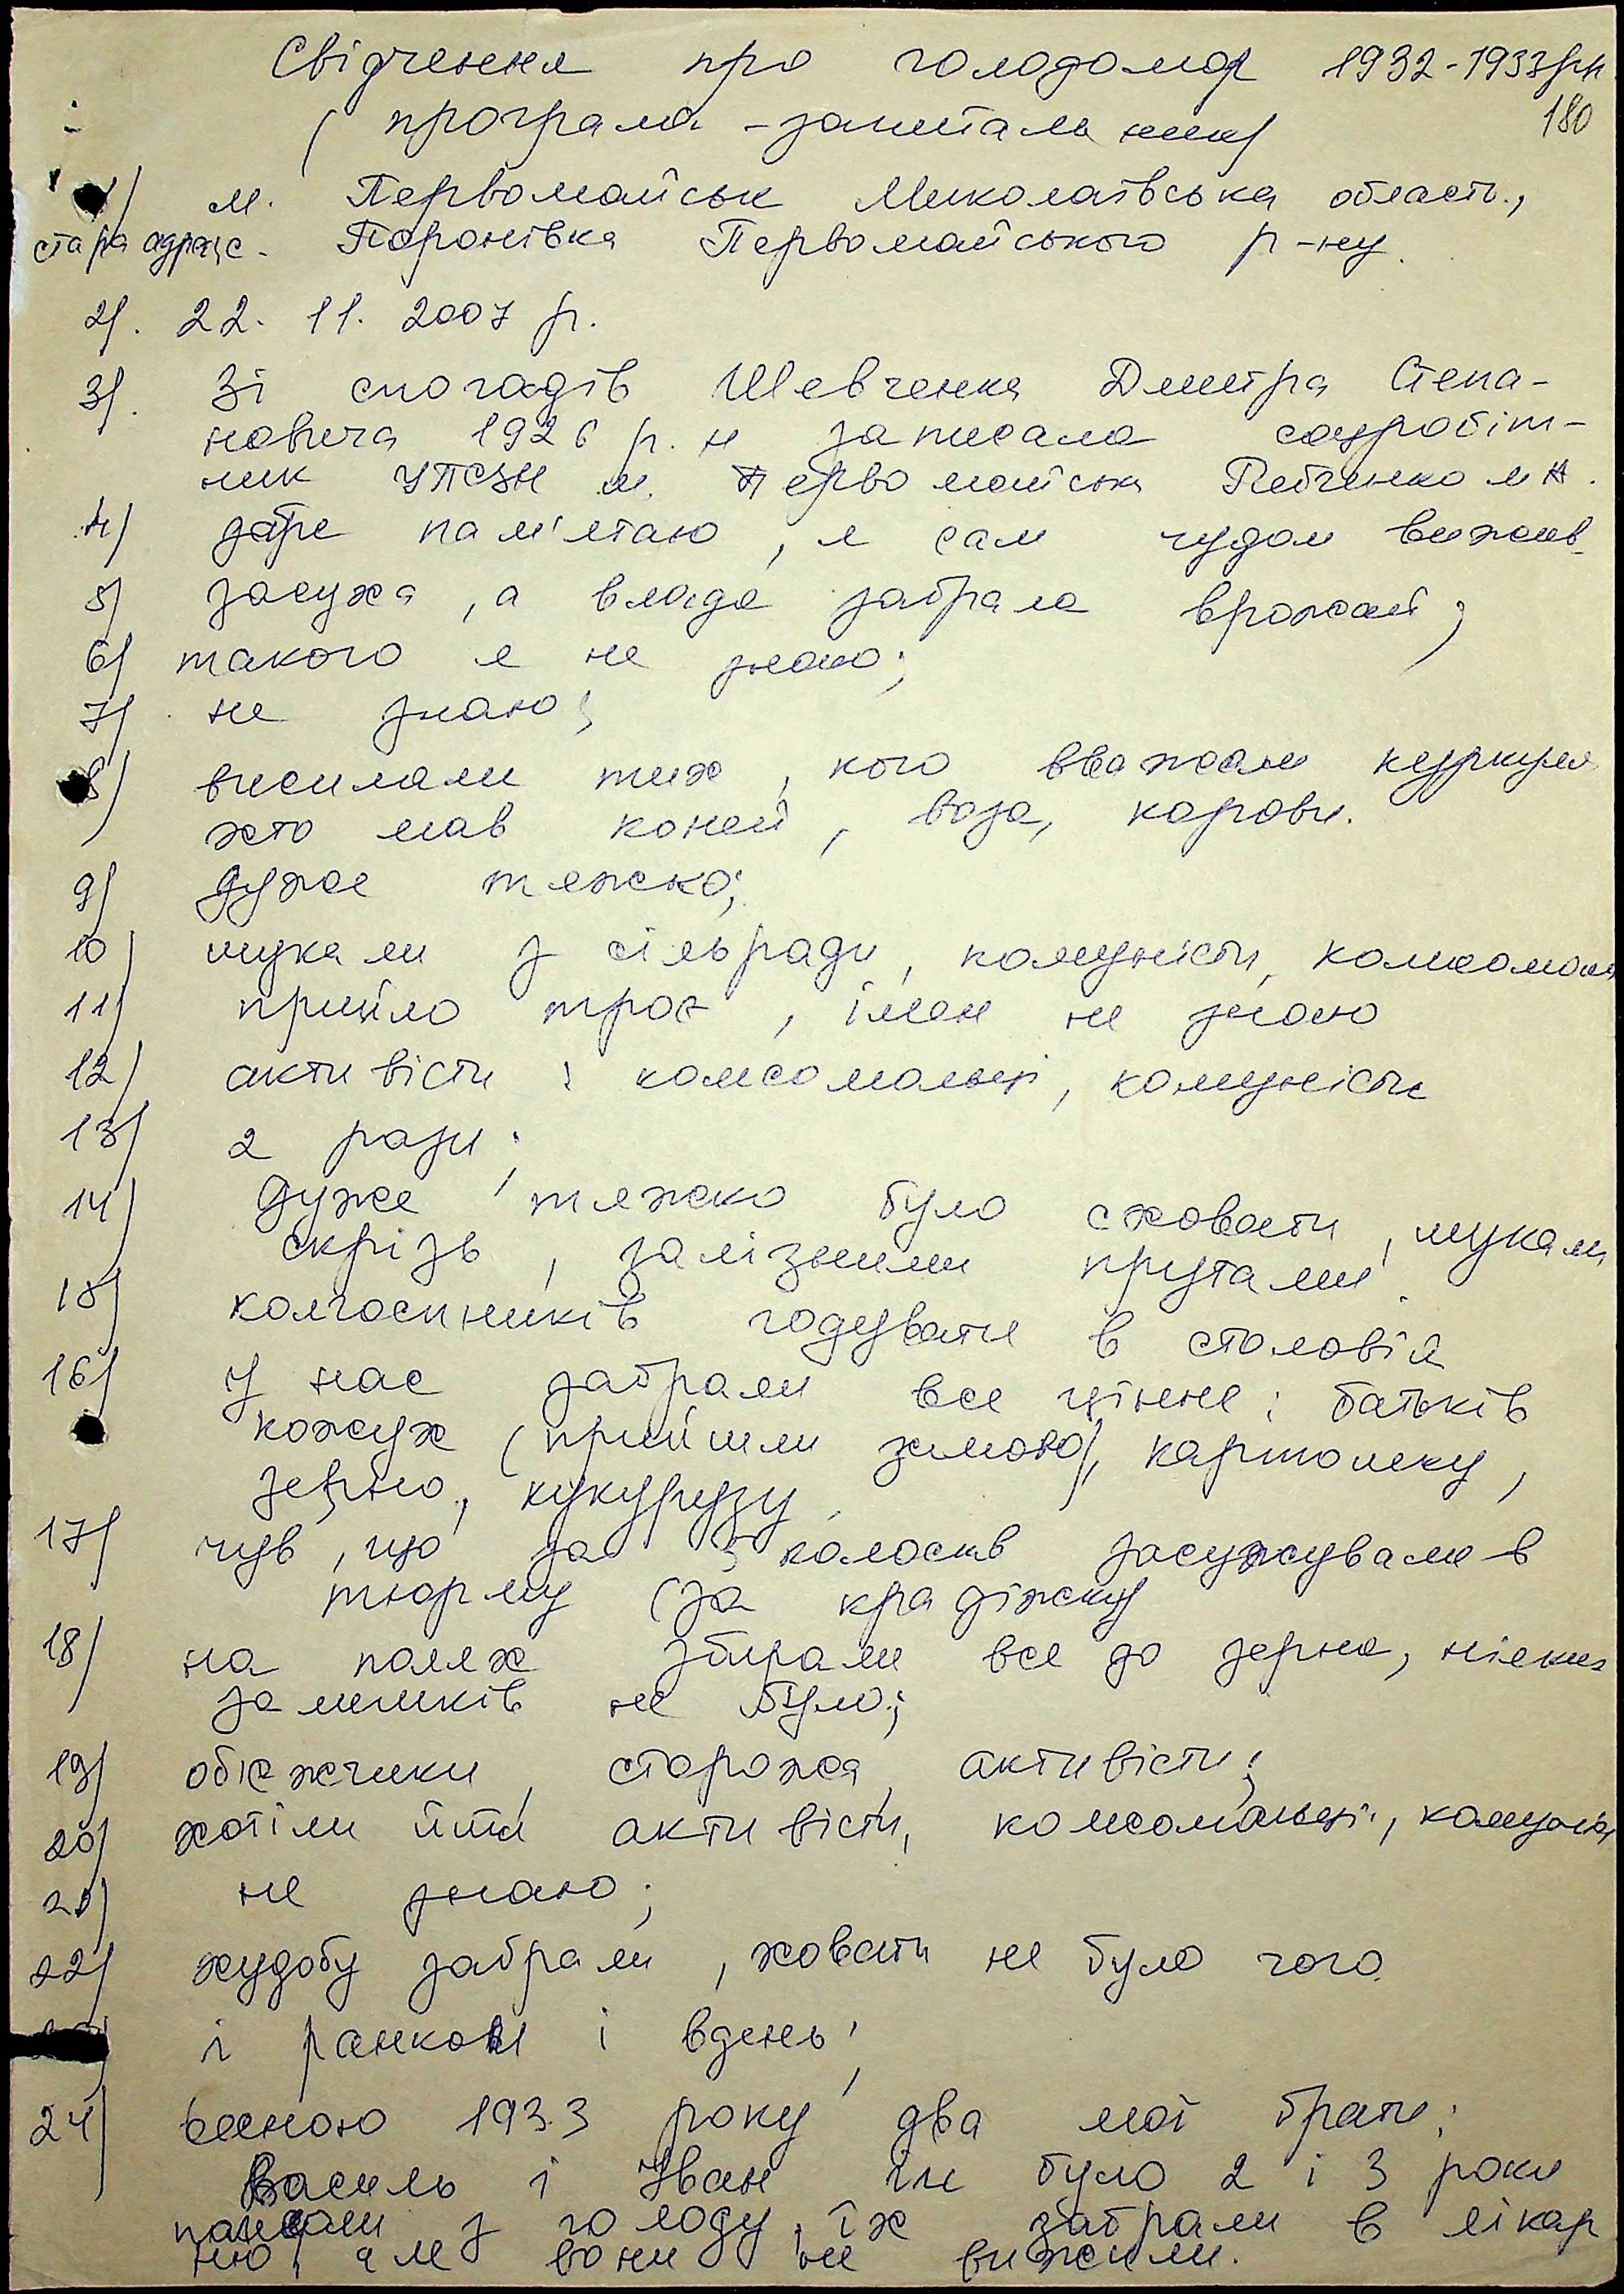 Свідчення про голодомор 1932-1933рр
180
( програма - запитальник)
1) м. Первомайськ Миколаївська область.,
стара адреса. Поронівка Первомайського р-ну.
2). 22. 11. 2007 р.
3). Зі спогадів Шевченка Дмитра Степа-
новича 1926 р. н записала соцробіт-
ник УПСЗН м. Первомайська м А.
4) добре пам'ятаю, я сам чудом вижив
5) засуха, а влада забрала врожай;
6) такого я не знаю;
7) не знаю;
8) висилали тих, кого вважали куркуля
хто мав коней, воза, корови.
9) дуже тяжко;
10) шукали з сільради, комуністи,
11) прийшло троє, імен не знаю
12) активісти: комсомольці, комуністи
13) 2 рази;
14) Дуже тяжко було сховати, шукали
скрізь, залізними прутами.
15) колгоспників годували в столовій
16) у нас забрали все цінне: батьків
кожух (прийшли зимою), картоплю,
зерно, кукурузу.
17) чув, що за 5 колосків засужували в
тюрму (за крадіжку)
18) на полях збирали все до зерна, ніяких
залишків не було;
19) обіжчики, сторожа, активісти;
20) хотіли йти активісти, комсомольці,
21) не знаю;
22) худобу забрали, ховати не було чого.
і ранком і вдень;
24) весною 1933 року два мої брати:
Василь і Іван їм було 2 і 3 роки
з голоду, їх забрали в лікар
ню, але вони не вижили.